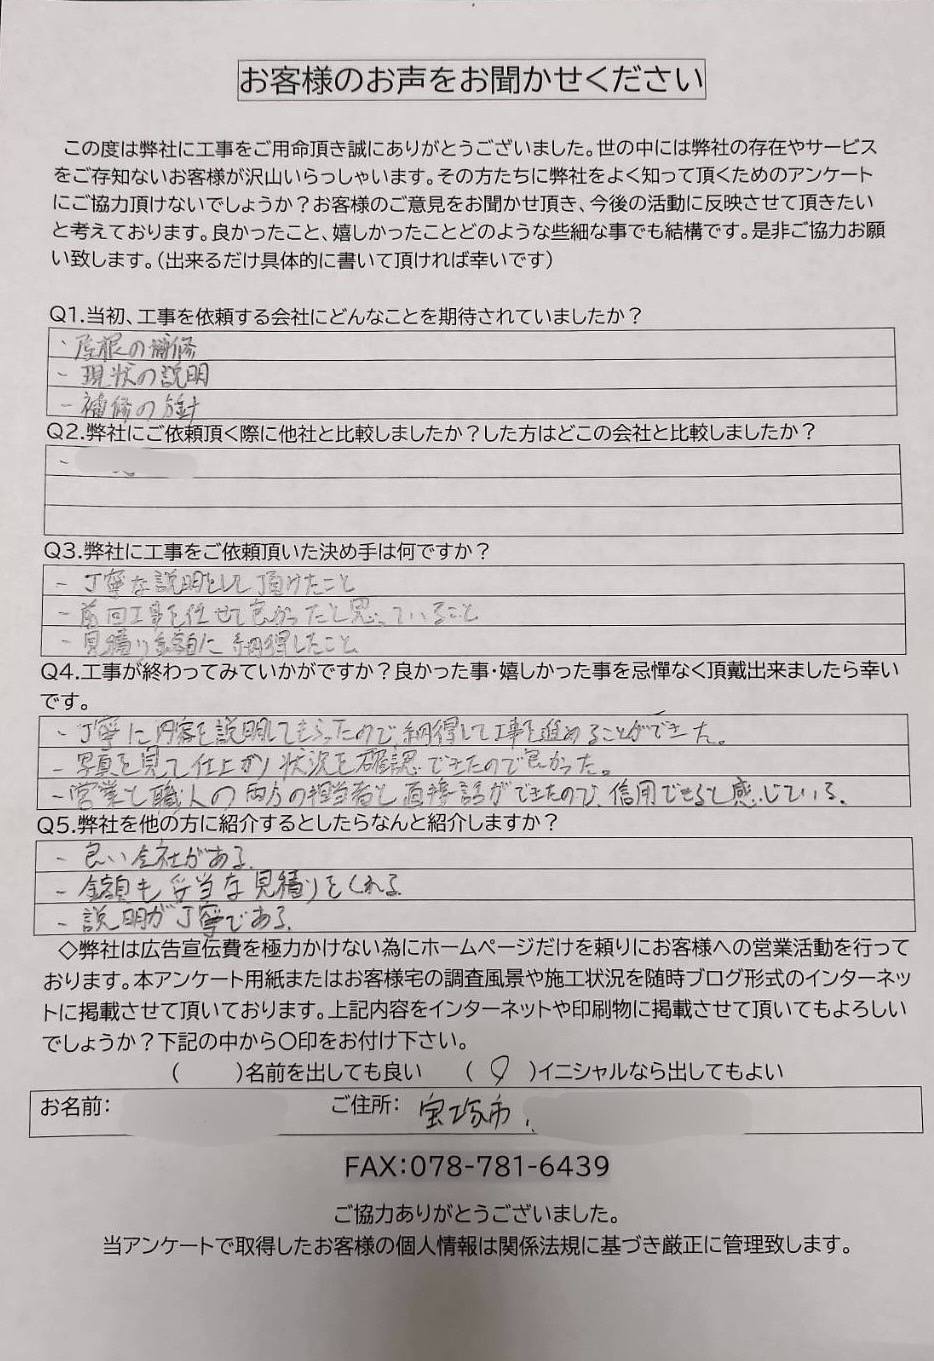 お客様のお声をお聞かせください
この度は弊社に工事をご用命頂き誠にありがとうございました。世の中には弊社の存在やサービス
をご存知ないお客様が沢山いらっしゃいます。その方たちに弊社をよく知って頂くためのアンケート
にご協力頂けないでしょうか？お客様のご意見をお聞かせ頂き、今後の活動に反映させて頂きたい
と考えております。良かったこと、嬉しかったことどのような些細な事でも結構です。是非ご協力お願
い致します。（出来るだけ具体的に書いて頂ければ幸いです）
Q1.当初、工事を依頼する会社にどんなことを期待されていましたか？
- 屋根の補修
- 現状の説明
- 補修の方針
Q2.弊社にご依頼頂く際に他社と比較しましたか？した方はどこの会社と比較しましたか？
-
Q3.弊社に工事をご依頼頂いた決め手は何ですか？
- 丁寧な説明をして頂けたこと
- 前回工事を任せて良かったと思っていること
- 見積り金額に納得したこと
Q4.工事が終わってみていかがですか？良かった事・嬉しかった事を忌憚なく頂戴出来ましたら幸い
です。
- 丁寧に内容を説明してもらったので、納得して工事を進めることができた。
- 写真を見て仕上がり状況を確認できたので良かった。
- 営業と職人の両方の担当者と直接話ができたので、信用できると感じている。
Q5.弊社を他の方に紹介するとしたらなんと紹介しますか？
- 良い会社がある。
- 金額も妥当な見積りをくれる。
- 説明が丁寧である。
◇弊社は広告宣伝費を極力かけない為にホームページだけを頼りにお客様への営業活動を行って
おります。本アンケート用紙またはお客様宅の調査風景や施工状況を随時ブログ形式のインターネッ
トに掲載させて頂いております。上記内容をインターネットや印刷物に掲載させて頂いてもよろしい
でしょうか？下記の中から〇印をお付け下さい。
（　　）名前を出しても良い　（ ○ ）イニシャルなら出してもよい
お名前：　ご住所： 宝塚市
FAX：078-781-6439
ご協力ありがとうございました。
当アンケートで取得したお客様の個人情報は関係法規に基づき厳正に管理致します。